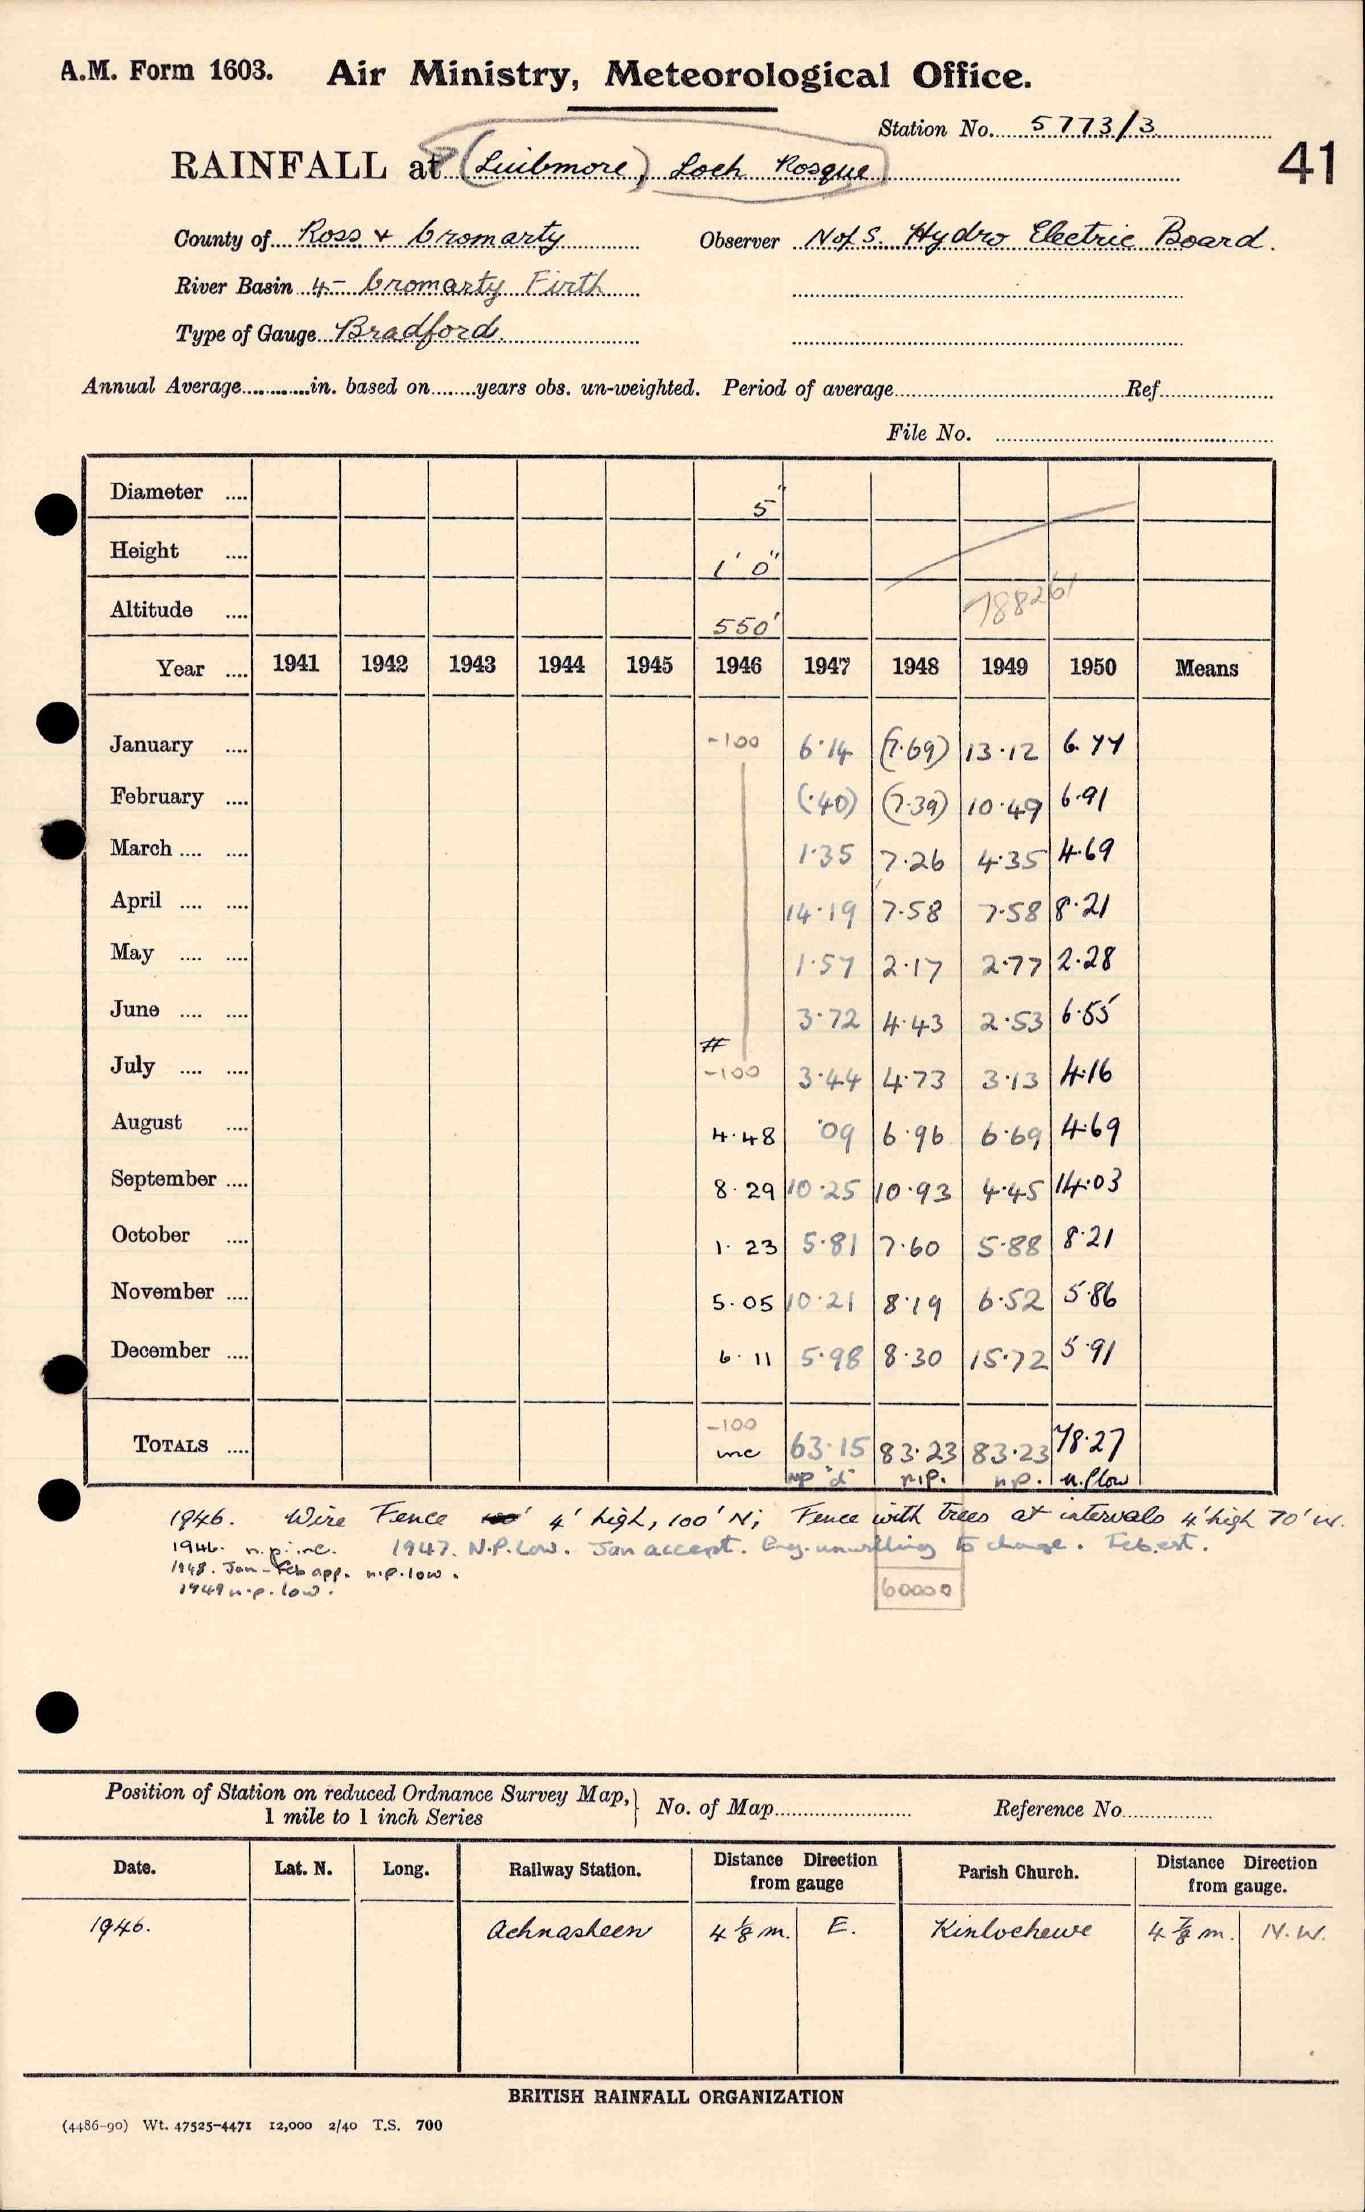 A.M. Form 1603. Air Ministry, Meteorological Office.
Station No. 5773/3
RAINFALL at (Luibmore), Loch Rosque
41
County of Ross & Cromarty Observer N of S. Hydro Electric Board.
River Basin 4- Cromarty Firth
Type of Gauge Bradford.
Annual Average............in. based on........years obs. un-weighted. Period of average............Ref............
File No.
Diameter .... 5"
Height .... 1' 0"
Altitude .... 550' 788261
Year .... 1941 1942 1943 1944 1945 1946 1947 1948 1949 1950 Means
January .... -100 6.14 (7.69) 13.12 6.77
February .... (.40) (7.39) 10.49 6.91
March .... .... 1.35 7.26 4.35 4.69
April .... .... 14.19 7.58 7.58 8.21
May .... .... 1.57 2.17 2.77 2.28
June .... .... 3.72 4.43 2.53 6.55
July .... .... # -100 3.44 4.73 3.13 4.16
August .... 4.48 .09 6.96 6.69 4.69
September .... 8.29 10.25 10.93 4.45 14.03
October .... 1.23 5.81 7.60 5.88 8.21
November .... 5.05 10.21 8.19 6.52 5.86
December .... 6.11 5.98 8.30 15.72 5.91
-100
TOTALS .... inc 63.15 83.23 83.23 78.27
np "d" n.p. n.p. n.p low
1946. Wire Fence 4' high, 100' N; Fence with trees at intervals 4' high 70' W.
1946. n.p. inc. 1947. N.P. Low. Jan accept. Eng. unwilling to change. Feb. est.
1948. Jan - Feb app. n.p. low.
1949 n.p. low.
60000
Position of Station on reduced Ordnance Survey Map, 1 mile to 1 inch Series } No. of Map............ Reference No............
Date. Lat. N. Long. Railway Station. Distance Direction from gauge Parish Church. Distance Direction from gauge.
1946. Achnasheen 4 1/8 m. E. Kinlochewe 4 7/8 m. N.W.
BRITISH RAINFALL ORGANIZATION
(4486-90) Wt. 47525-4471 12,000 2/40 T.S. 700